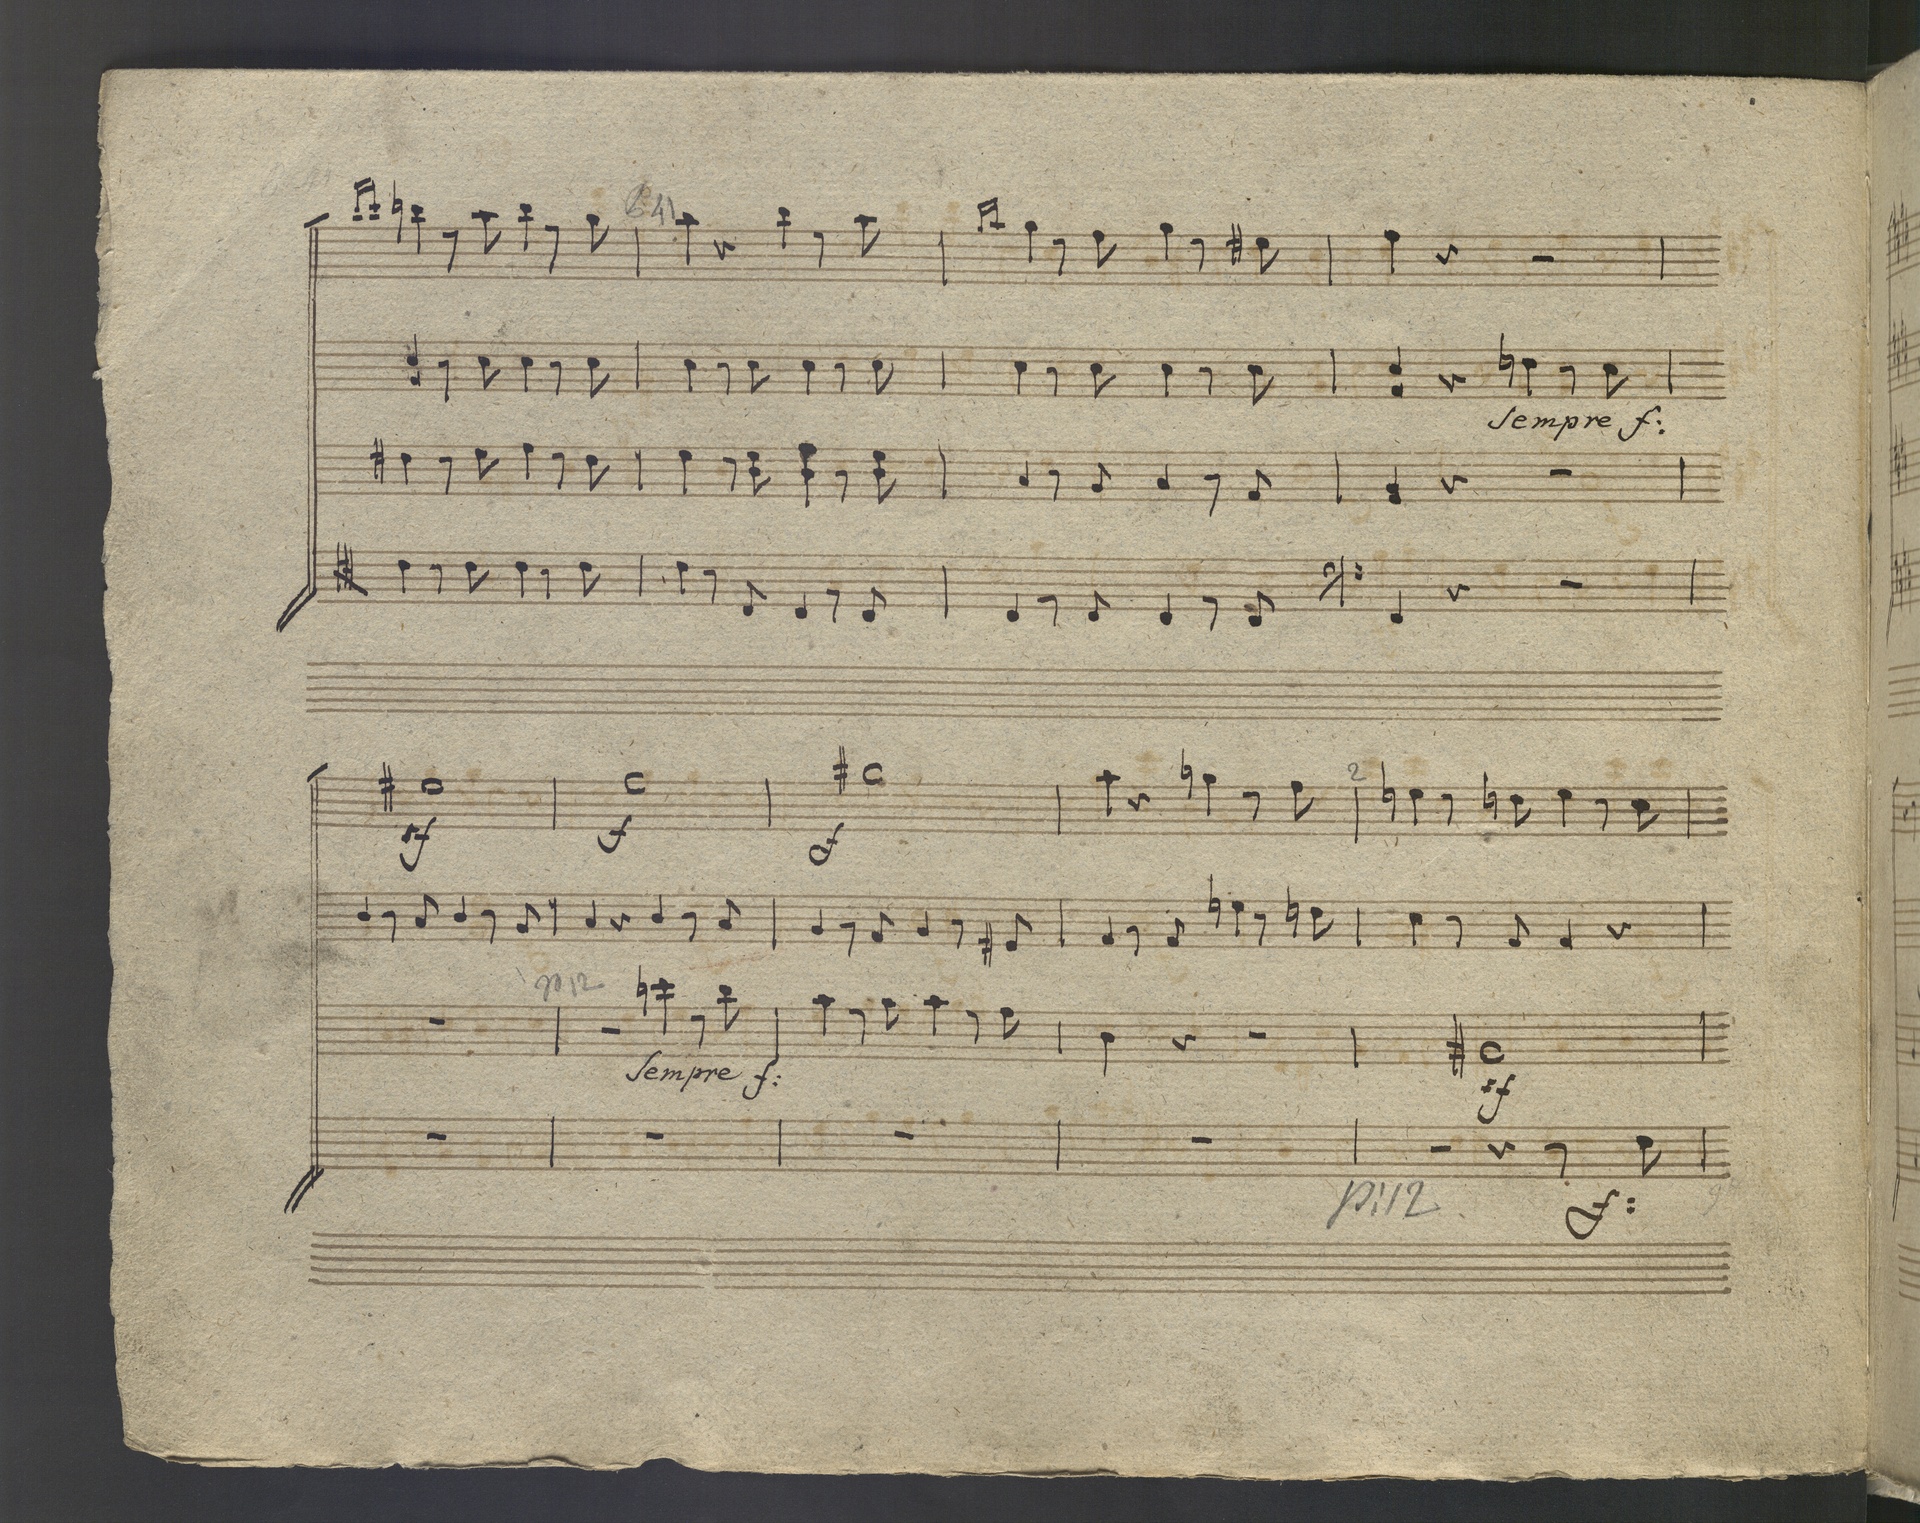 41
Sempre f:
sf f f
2
p 12
Sempre f:
sf
p:12.
f: